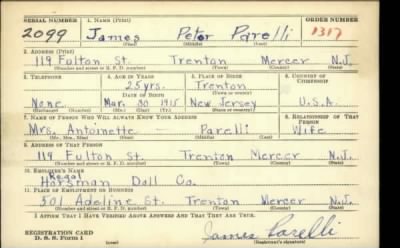 SERIAL NUMBER 1. NAME (Print) ORDER NUMBER
2099 James Peter Parelli 1317
(First) (Middle) (Last)
2. ADDRESS (Print)
119 Fulton St. Trenton Mercer N.J.
(Number and street or R. F. D. number) (Town) (County) (State)
3. TELEPHONE 4. AGE IN YEARS 5. PLACE OF BIRTH 6. COUNTRY OF CITIZENSHIP
25 yrs. Trenton
DATE OF BIRTH (Town or county)
None Mar. 30 1915 New Jersey U.S.A.
(Exchange) (No.) (Mo.) (Day) (Yr.) (State or country)
7. NAME OF PERSON WHO WILL ALWAYS KNOW YOUR ADDRESS 8. RELATIONSHIP OF THAT PERSON
Mrs. Antoinette — Parelli Wife
(Mr., Mrs., Miss) (First) (Middle) (Last)
9. ADDRESS OF THAT PERSON
119 Fulton St. Trenton Mercer N.J.
(Number and street or R. F. D. number) (Town) (County) (State)
10. EMPLOYER'S NAME
Regal
Horsman Doll Co.
11. PLACE OF EMPLOYMENT OR BUSINESS
301 Adeline St. Trenton Mercer N.J.
(Number and street or R. F. D. number) (Town) (County) (State)
I AFFIRM THAT I HAVE VERIFIED ABOVE ANSWERS AND THAT THEY ARE TRUE.
REGISTRATION CARD
D. S. S. Form 1 (over) James Parelli
(Registrant's signature)